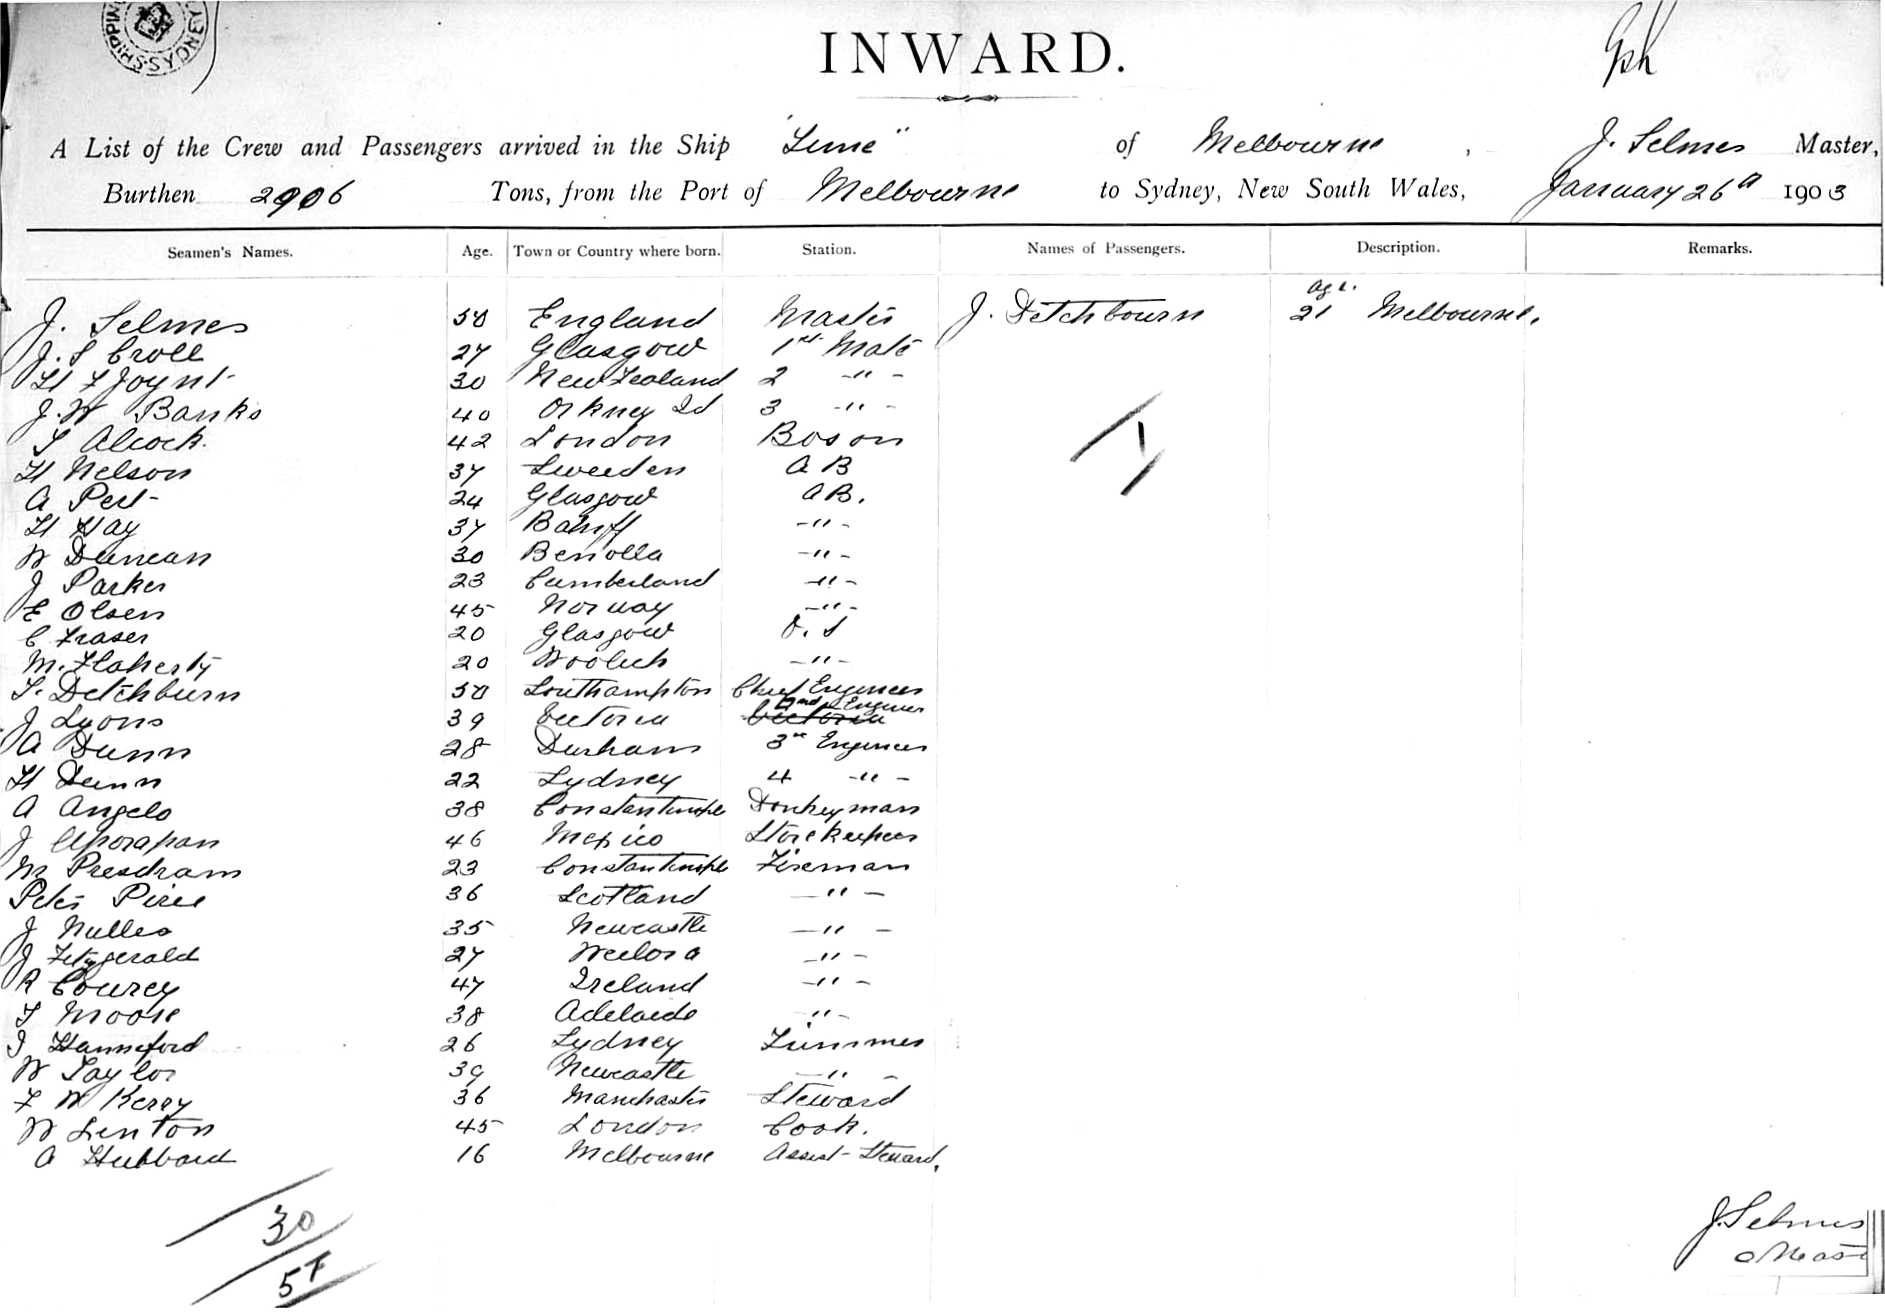 SHIPPING SYDNEY
INWARD.
A List of the Crew and Passengers arrived in the Ship "Time" of Melbourne, J. Selmes Master,
Burthen 2906 Tons, from the Port of Melbourne to Sydney, New South Wales, January 26th 1903
Seamen's Names. Age. Town or Country where born. Station. Names of Passengers. Description. Remarks.
J. Selmes 50 England Master J. Detchbourn Age. 21 Melbourne.
J. S Croll 27 Glasgow 1st Mate
H F Joynt 30 New Zealand 2 -"-
J. W Banks 40 Orkney Id 3 -"-
T Alcock. 42 London Boson
H Nelson 37 Sweeden A B
A Pert 24 Glasgow AB.
H Hay 37 Banff -"-
W Duncan 30 Benolla -"-
J Parker 23 Cumberland -"-
E Olsen 45 Norway -"-
C Fraser 20 Glasgow O. S
M. Flaherty 20 Woolich -"-
T. Detchburn 50 Southampton Chief Engineer
J Lyons 39 Victoria Victoria 2nd Engineer
A Dunn 28 Durham 3rd Engineer
H Dunn 22 Sydney 4 -"-
A Angelo 38 Constantinople Donkeyman
J 46 Mexico Storekeeper
M 23 Constantinople Fireman
Peter Pirie 36 Scotland -"-
J 35 Newcastle -"-
J Fitzgerald 27 -"-
R Courcy 47 Ireland -"-
T Moore 38 Adelaide -"-
Hanneford 26 Sydney Trimmer
W Taylor 39 Newcastle -"-
F W Kerry 36 Manchester Steward
W Linton 45 London Cook.
A Hubbard 16 Melbourne Assist- Steward.
1
30
J. Selmes
Mast